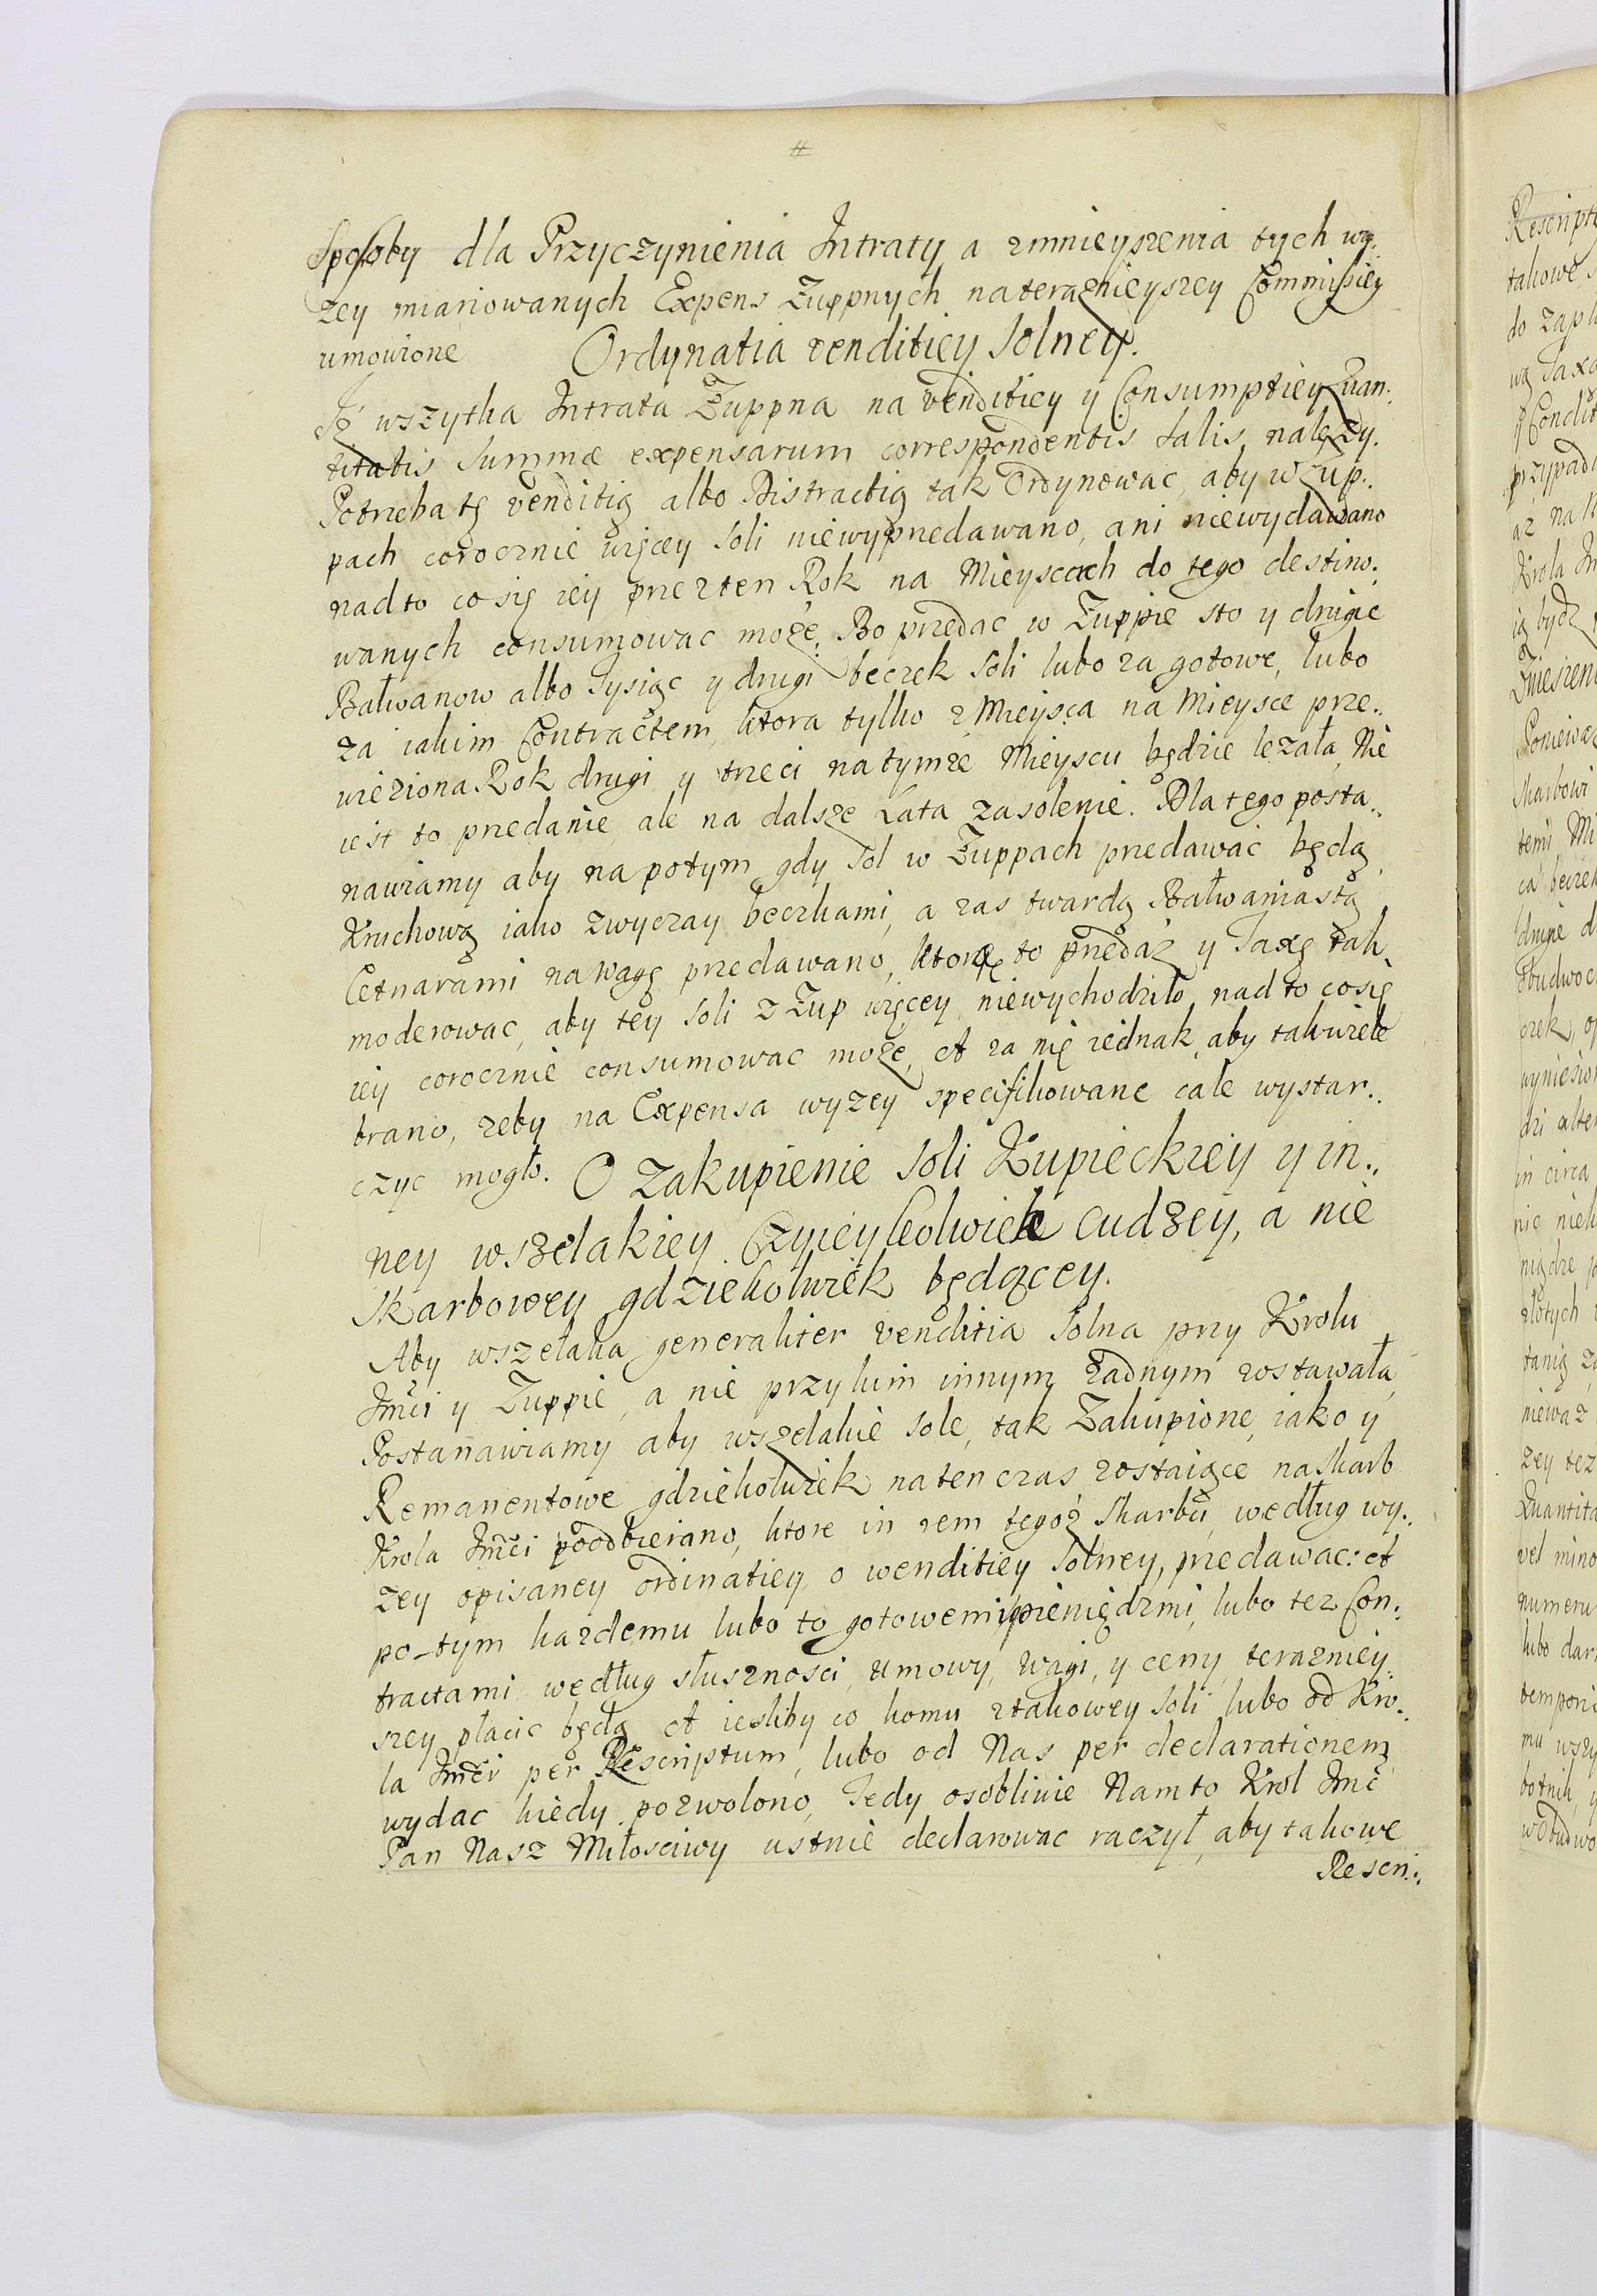 #
Sposoby dla Przyczynienia Intraty a zmnieyszenia tych wy:
zey mianowanych Expens Zuppnych na teraznieyszey Commissiey
umowione Ordynatia venditiey Solney.
Iż wszytka Intrata Zuppna na venditiey y Consumptiey Quan:
titatis Summæ expensarum correspondentis Salis należy.
Potrzeba tę venditią albo Distractią tak Ordynowac, aby w Zup:
pach corocznie więcey Soli niewyprzedawano, ani niewydawano
nad to co się iey przez ten Rok na Mieyscach do tego destino:
wanych consumowac może. Bo przedac w Zuppie sto y drugie
Bałwanow albo Tysiąc y drugi beczek Soli lubo za gotowe, lubo
za iakim Contractem, ktora tylko z Mieysca na Mieysce prze:
wieziona Rok drugi y trzeci na tymże Mieyscu będzie leżała, Nie
iest to przedanie ale na dalsze Lata zasolenie. Dla tego posta:
nawiamy aby na potym gdy Sol w Zuppach przedawać będą
Kruchową iako zwyczay beczkami, a zas twardą Bałwaniastą
Cetnarami na wagę przedawano, ktorą to przedaż y Taxę tak
moderowac, aby tey Soli z Zup więcey niewychodziło nad to co się
iey corocznie consumowac może, et za nię iednak aby tak wiele
brano, zeby na Expensa wyzey specifikowane cale wystar:
czyc mogło. O Zakupienie Soli Kupieckiey y in:
ney wszelakiey Czyieykolwiek cudzey, a nie
Skarbowey gdziekolwiek będącey.
Aby wszelaka generaliter venditia Solna przy Krolu
Jmći y Zuppie, a nie przy kim innym żadnym zostawała,
Postanawiamy aby wszelakie Sole, tak Zakupione, iako y
Remanentowe gdziekolwiek na ten czas zostaiące na Skarb
Krola Jmći poodbierano, ktore in rem tegoż Skarbu, według wy:
zey opisaney ordinatiey o wenditiey Solney, przedawac: et
po-tym kazdemu lubo to gotowemi pieniędzmi, lubo tez Con:
tractami według słusznosci, umowy, wagi, y ceny terazniey:
szey płacic będą et iesliby co komu z takowey Soli lubo od Kro:
la Jmći per Rescriptum, lubo od Nas per declarationem
wydac kiedy pozwolono, Tedy osobliwie Nam to Krol Jmć
Pan Nasz Miłosciwy ustnie declarowac raczył, aby takowe
Rescri: